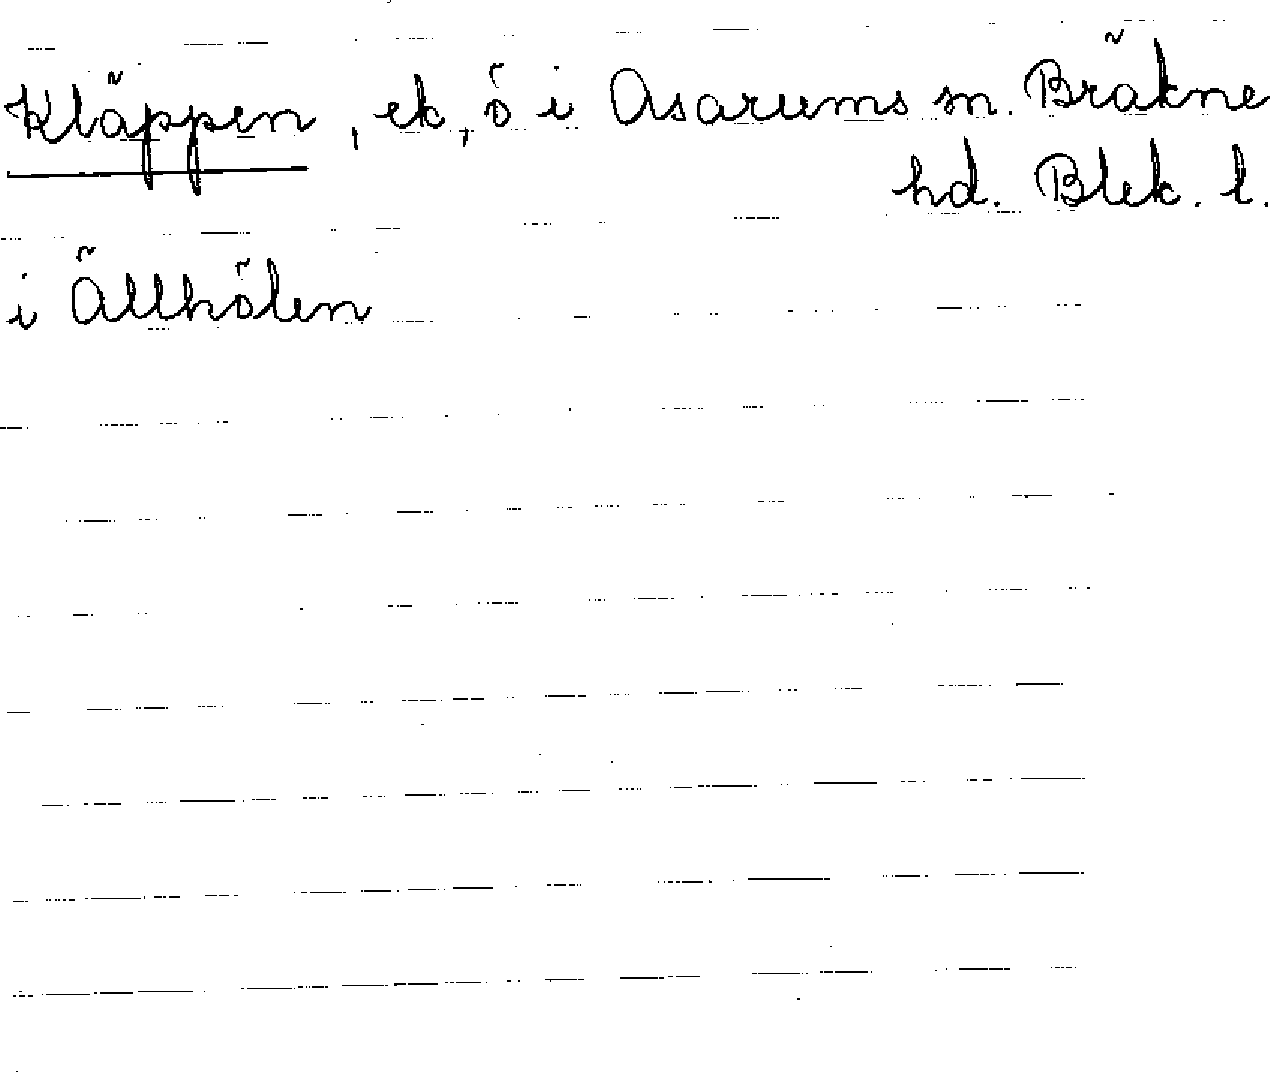 Kläppen, ek, ö i Asarums sn. Bräkne
hd. Blek. l.
i Ällhölen